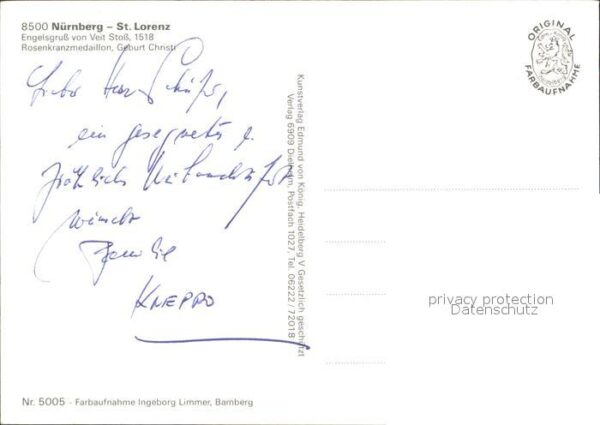 8500 Nürnberg – St. Lorenz
Engelsgruß von Veit Stoß, 1518
Rosenkranzmedaillon, Geburt Christi
ORIGINAL
FARBAUFNAHME
Lieber Herr Schäfer,
ein gesegnetes u.
fröhliches Weihnachtsfest
wünscht
Familie
KNEPPO
Kunstverlag Edmund von König, Heidelberg V Gesetzlich geschützt
Verlag 6909 Dielheim, Postfach 1027, Tel. 06222/72018
privacy protection
Datenschutz
Nr. 5005 - Farbaufnahme Ingeborg Limmer, Bamberg